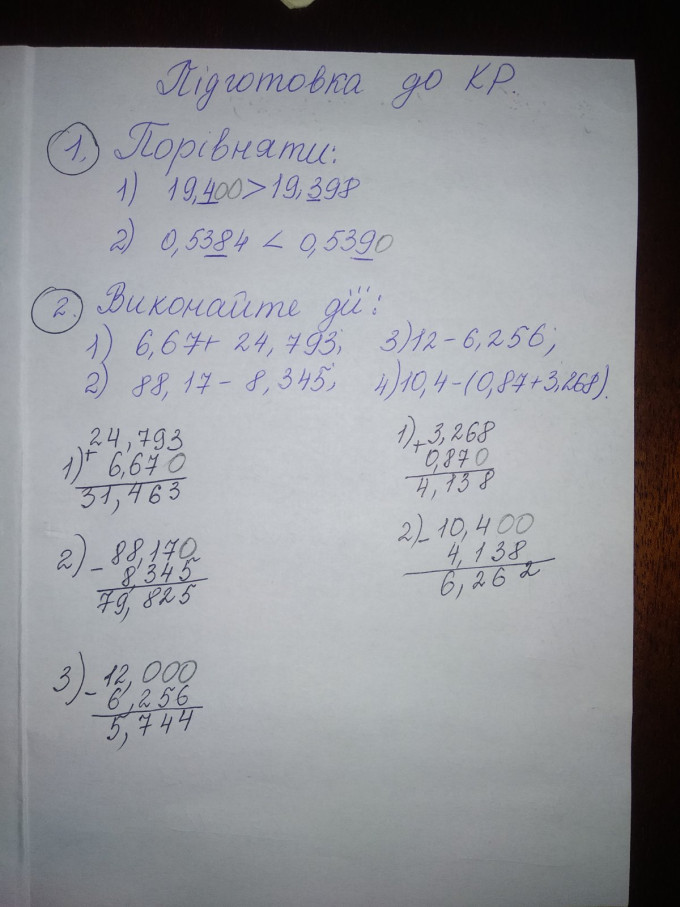 Підготовка до КР.
1. Порівняти:
1) 19,400 > 19,398
2) 0,5384 < 0,5390
2. Виконайте дії:
1) 6,67 + 24,793; 3) 12 - 6,256;
2) 88,17 - 8,345; 4) 10,4 - (0,87 + 3,268).
1) + 24,793
6,670
31,463
2) - 88,170
8,345
79,825
3) - 12,000
6,256
5,744
1) + 3,268
0,870
4,138
2) - 10,400
4,138
6,262